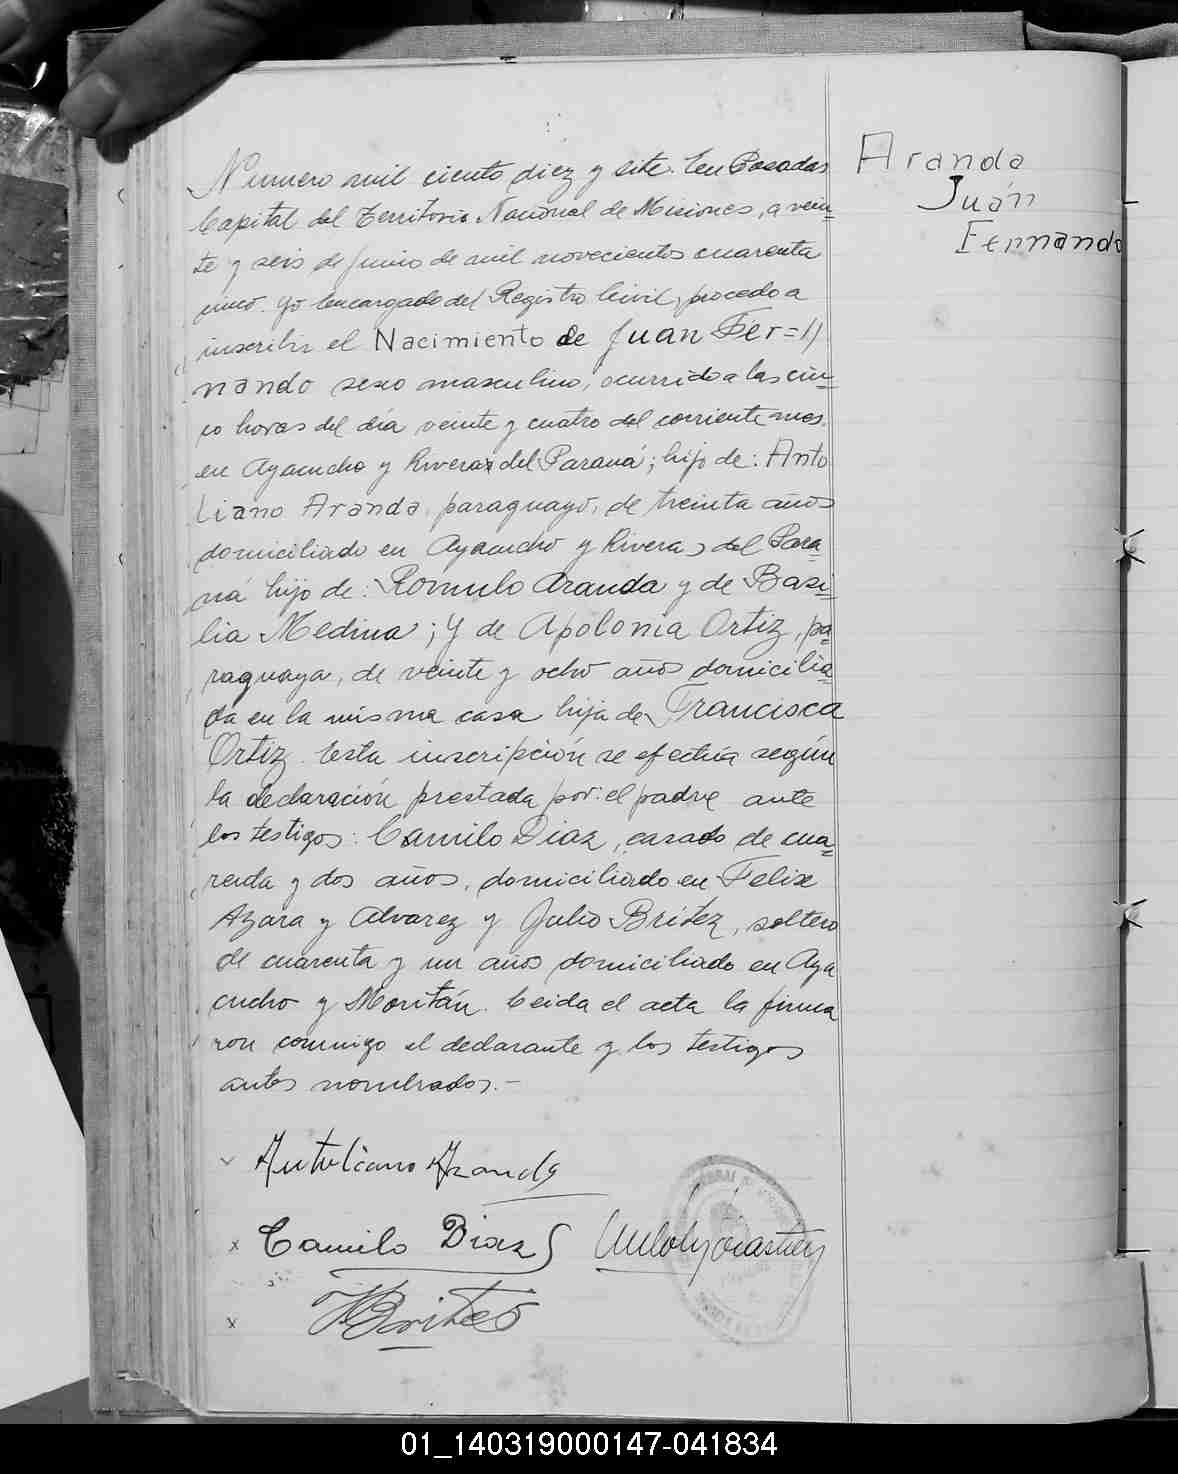 Numero mil ciento diez y siete. En Posadas
Aranda
Capital del Territorio Nacional de Misiones, a vein=
Juán
te y seis de junio de mil novecientos cuarenta
Fernando
cinco. Yo Encargado del Registro Civil, procedo a
inscribir el Nacimiento de Juan Fer=//
nando sexo masculino, ocurrido a las cin=
co horas del día veinte y cuatro del corriente mes.
en Ayacucho y Riveras del Paraná; hijo de: Anto
liano Aranda, paraguayo, de treinta años
domiciliado en Ayacucho y Riveras del Para=
ná hijo de: Romulo Aranda y de Basi=
lia Medina; Y de Apolonia Ortiz, pa=
raguaya, de veinte y ocho años domicilia=
da en la misma casa hija de Francisca
Ortiz. Esta inscripción se efectúa según
la declaración prestada por: el padre ante
los testigos: Camilo Diaz, casado de cua=
renta y dos años, domiciliado en Felix
Azara y Alvarez y Julio Britez, soltero
de cuarenta y un años domiciliado en Aya
cucho y Moritán. Leida el acta la firma
ron conmigo el declarante y los testigos
antes nombrados.-
Antoliano Aranda
Camilo Diaz
Britez
01_140319000147-041834